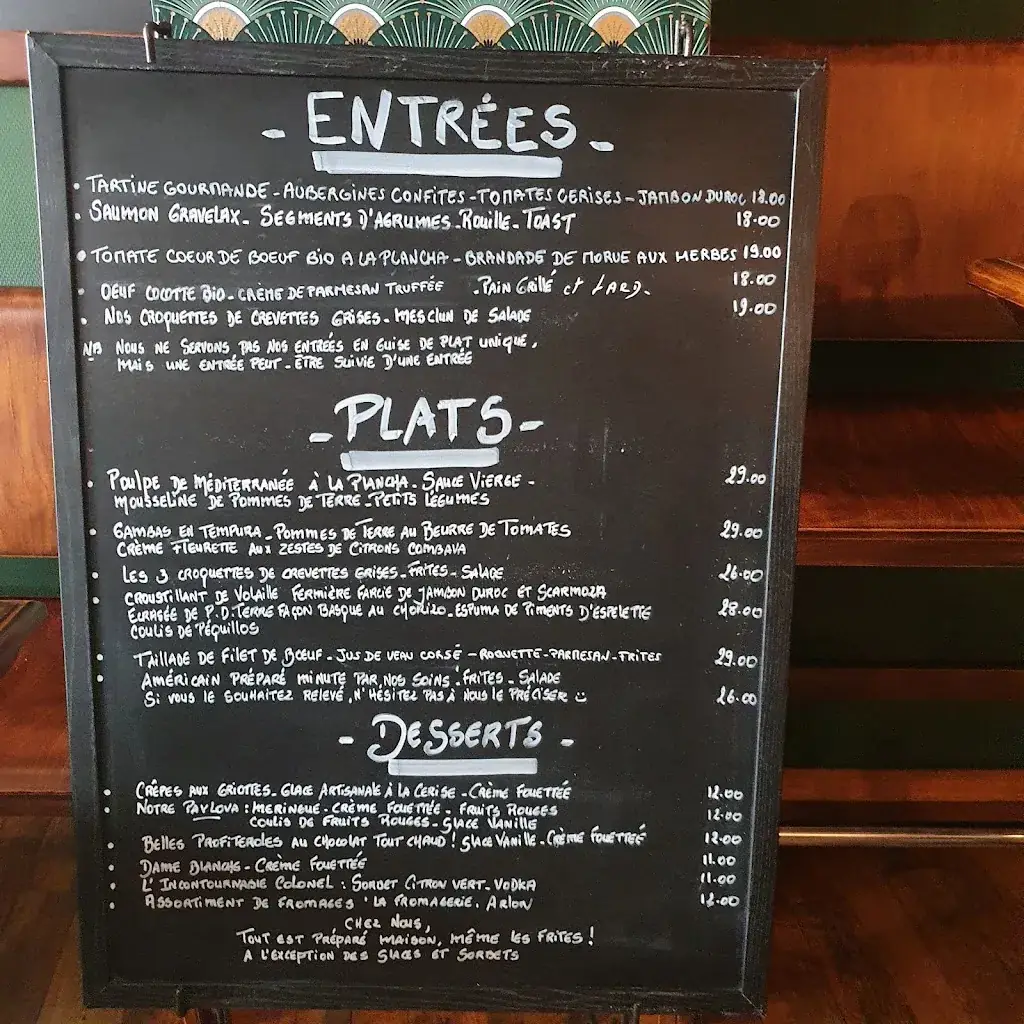 - ENTRÉES -
• TARTINE GOURMANDE - AUBERGINES CONFITES - TOMATES CERISES - JAMBON DUROC 18.00
• SAUMON GRAVELAX - SEGMENTS D'AGRUMES - ROUILLE - TOAST 18.00
• TOMATE COEUR DE BOEUF BIO A LA PLANCHA - BRANDADE DE MORUE AUX HERBES 19.00
• OEUF COCOTTE BIO - CRÈME DE PARMESAN TRUFFÉE - PAIN GRILLÉ et LARD - 18.00
• NOS CROQUETTES DE CREVETTES GRISES - MESCLUN DE SALADE 19.00
NB NOUS NE SERVONS PAS NOS ENTRÉES EN GUISE DE PLAT UNIQUE,
MAIS UNE ENTRÉE PEUT-ÊTRE SUIVIE D'UNE ENTRÉE
- PLATS -
• POULPE DE MÉDITERRANÉE À LA PLANCHA - SAUCE VIERGE - 29.00
MOUSSELINE DE POMMES DE TERRE - PETITS LÉGUMES
• GAMBAS EN TEMPURA - POMMES DE TERRE AU BEURRE DE TOMATES 29.00
CRÈME FLEURETTE AUX ZESTES DE CITRONS COMBAVA
• LES 3 CROQUETTES DE CREVETTES GRISES - FRITES - SALADE 26.00
• CROUSTILLANT DE VOLAILLE FERMIÈRE FARCIE DE JAMBON DUROC ET SCARMOZA
ECRASÉE DE P.D.TERRE FAÇON BASQUE AU CHORIZO - ESPUMA DE PIMENTS D'ESPELETTE 28.00
COULIS DE PÉQUILLOS
• TAILLADE DE FILET DE BŒUF - JUS DE VEAU CORSÉ - ROQUETTE - PARMESAN - FRITES 29.00
• AMÉRICAIN PRÉPARÉ MINUTE PAR NOS SOINS ! FRITES - SALADE
SI VOUS LE SOUHAITEZ RELEVÉ, N'HÉSITEZ PAS À NOUS LE PRÉCISER 26.00
- DESSERTS -
• CRÊPES AUX GRIOTTES - GLACE ARTISANALE À LA CERISE - CRÈME FOUETTÉE 12.00
• NOTRE PAVLOVA : MERINGUE - CRÈME FOUETTÉE - FRUITS ROUGES 12.00
COULIS DE FRUITS ROUGES - GLACE VANILLE
• BELLES PROFITEROLES AU CHOCOLAT TOUT CHAUD ! GLACE VANILLE - CRÈME FOUETTEÉ 12.00
• DAME BLANCHE - CRÈME FOUETTÉE 11.00
• L'INCONTOURNABLE COLONEL : SORBET CITRON VERT - VODKA 11.00
• ASSORTIMENT DE FROMAGES ' LA FROMAGERIE. ARLON
CHEZ NOUS,
TOUT EST PRÉPARÉ MAISON, MÊME LES FRITES !
A L'EXCEPTION DES GLACES ET SORBETS